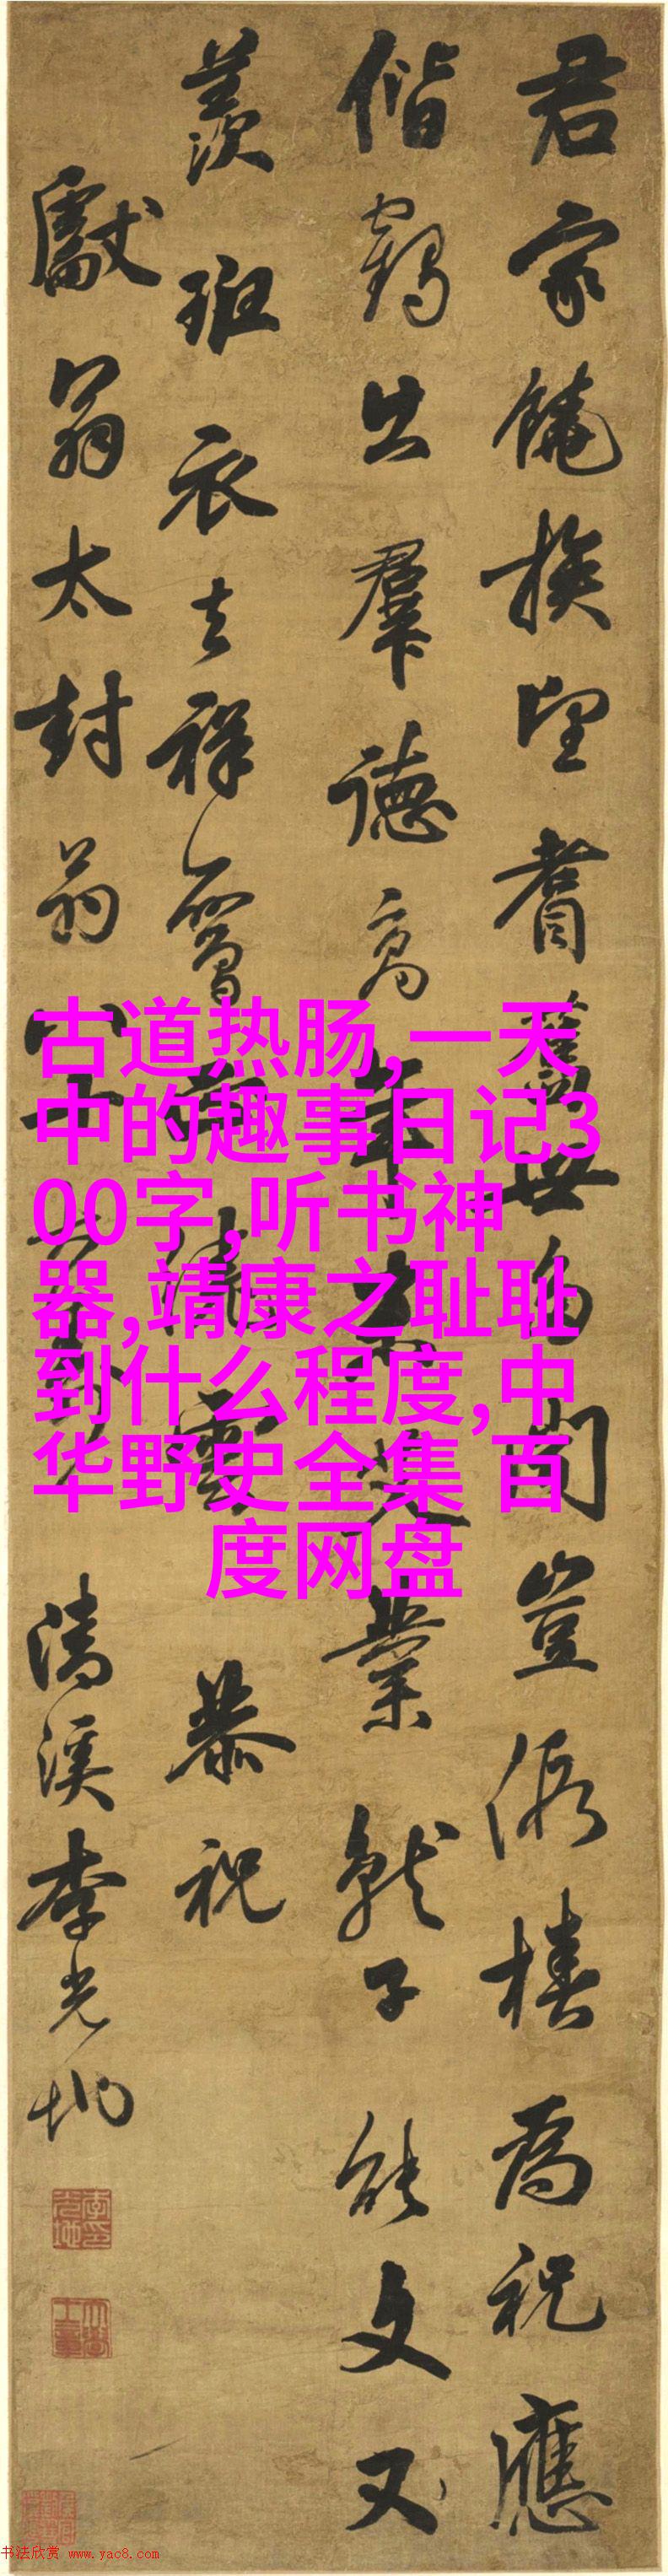 君家饒族望耆舊世向聞豈假椿為祝應
偕鶴出羣德高年業就子能文又
羨班衣
祥雲恭祝
獻翁太封翁
清溪李光地
古道热肠,一天
中的趣事日记3
00字,听书神
器,靖康之耻耻
到什么程度,中
华野史全集 百
度网盘
书法欣赏 www.yac8.com